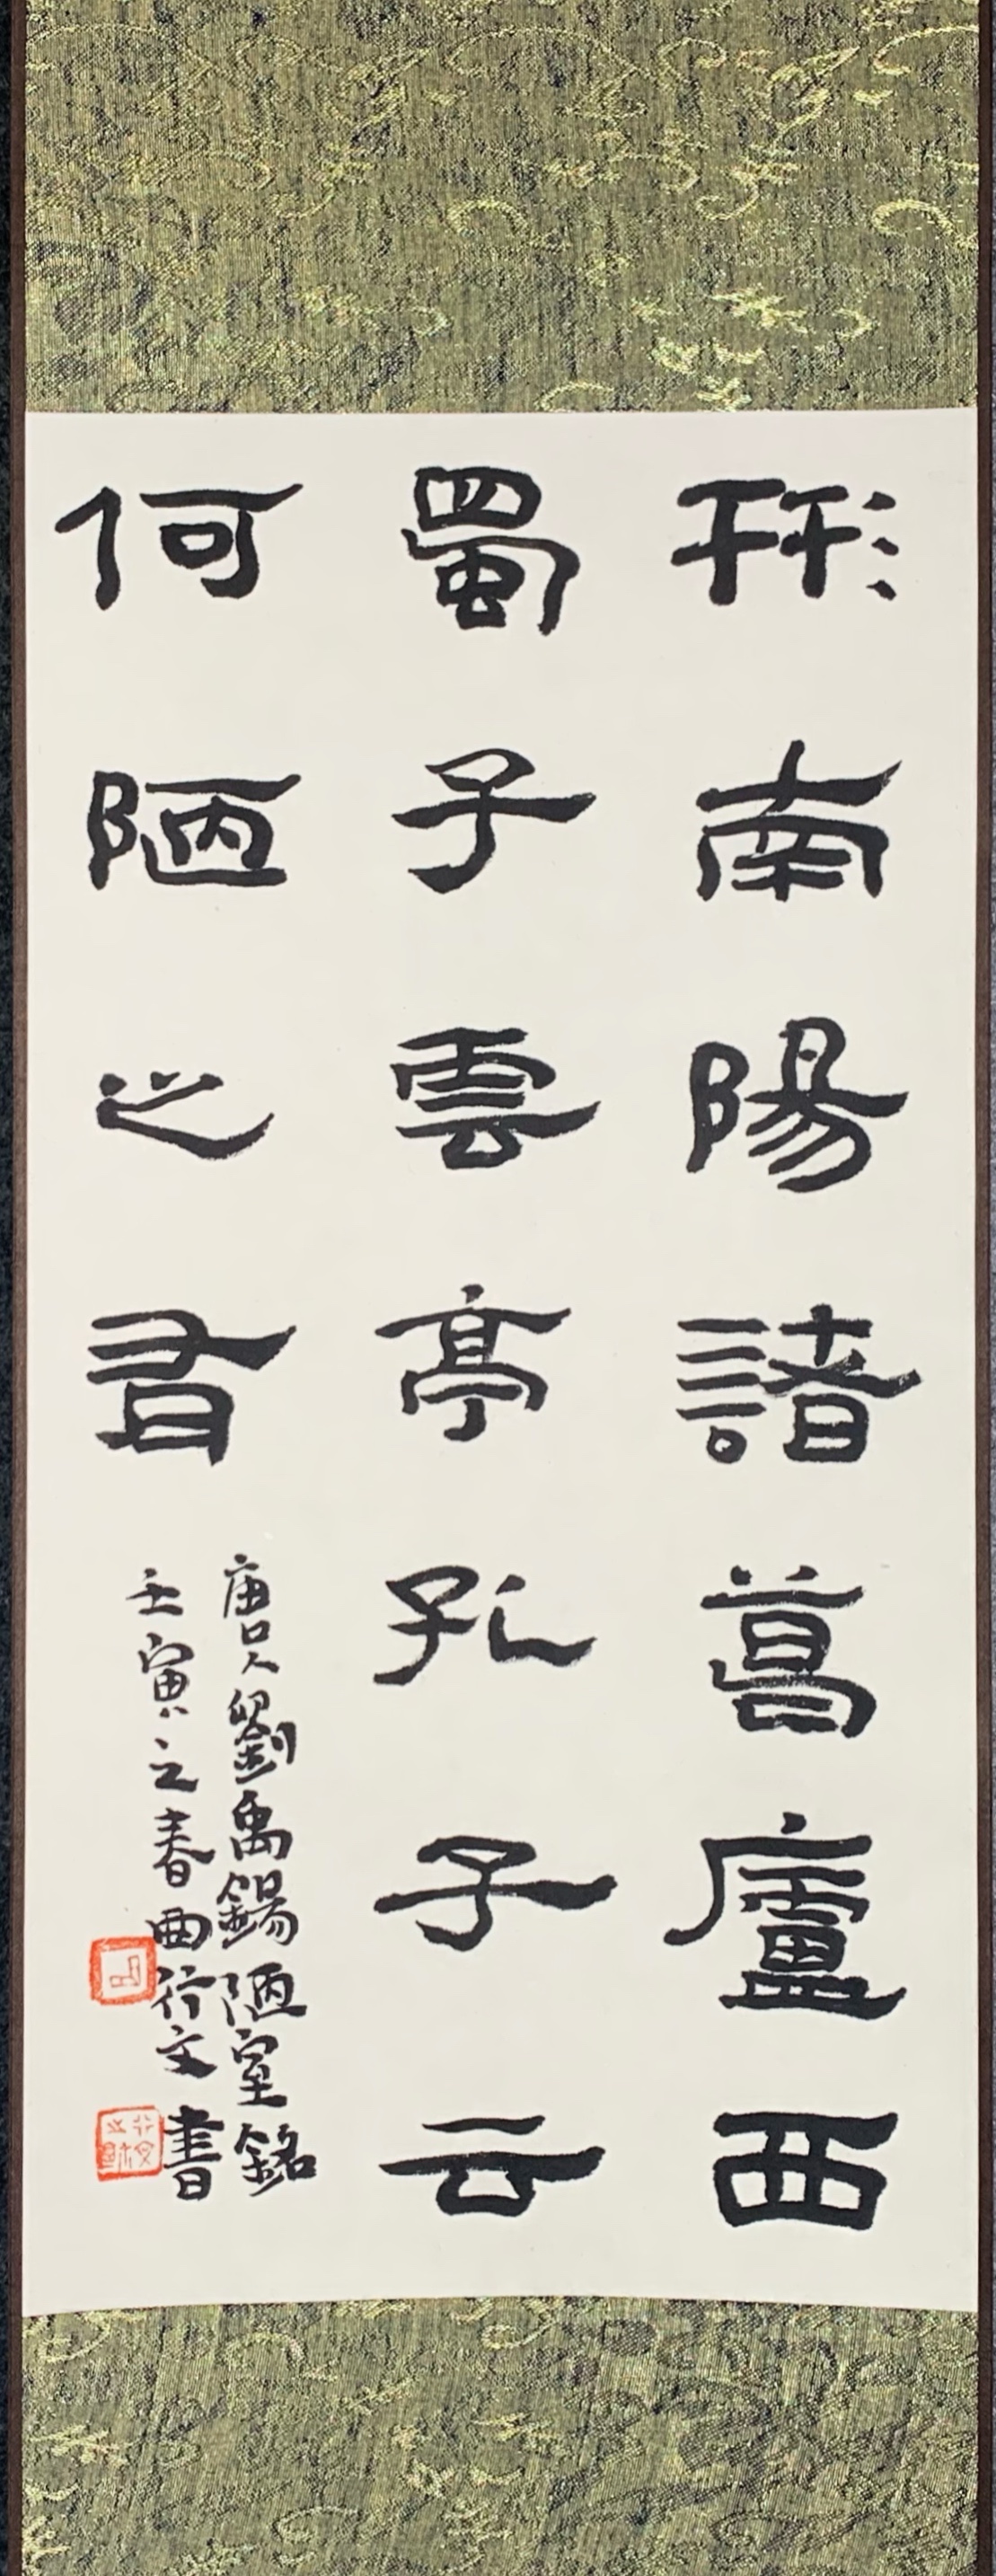 形南陽諸葛廬西
蜀子雲亭孔子云
何陋之有
唐人劉禹錫陋室銘
壬寅之春曲行文書